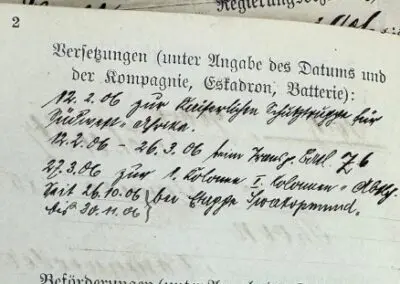 Regierungsbez
2
Versetzungen (unter Angabe des Datums und
der Kompagnie, Eskadron, Batterie):
12.2.06 zur Kaiserlichen Schutztruppe für
Südwest-Afrika.
12.2.06 - 26.3.06 beim Transp. Batl. Z 6
27.3.06 zur 1. Kolonne I. Kolonnen-Abtlg.
Seit 26.10.06 } bei Etappe Swakopmund.
bis 30.11.06
Beförderungen (unter Angabe des Datums